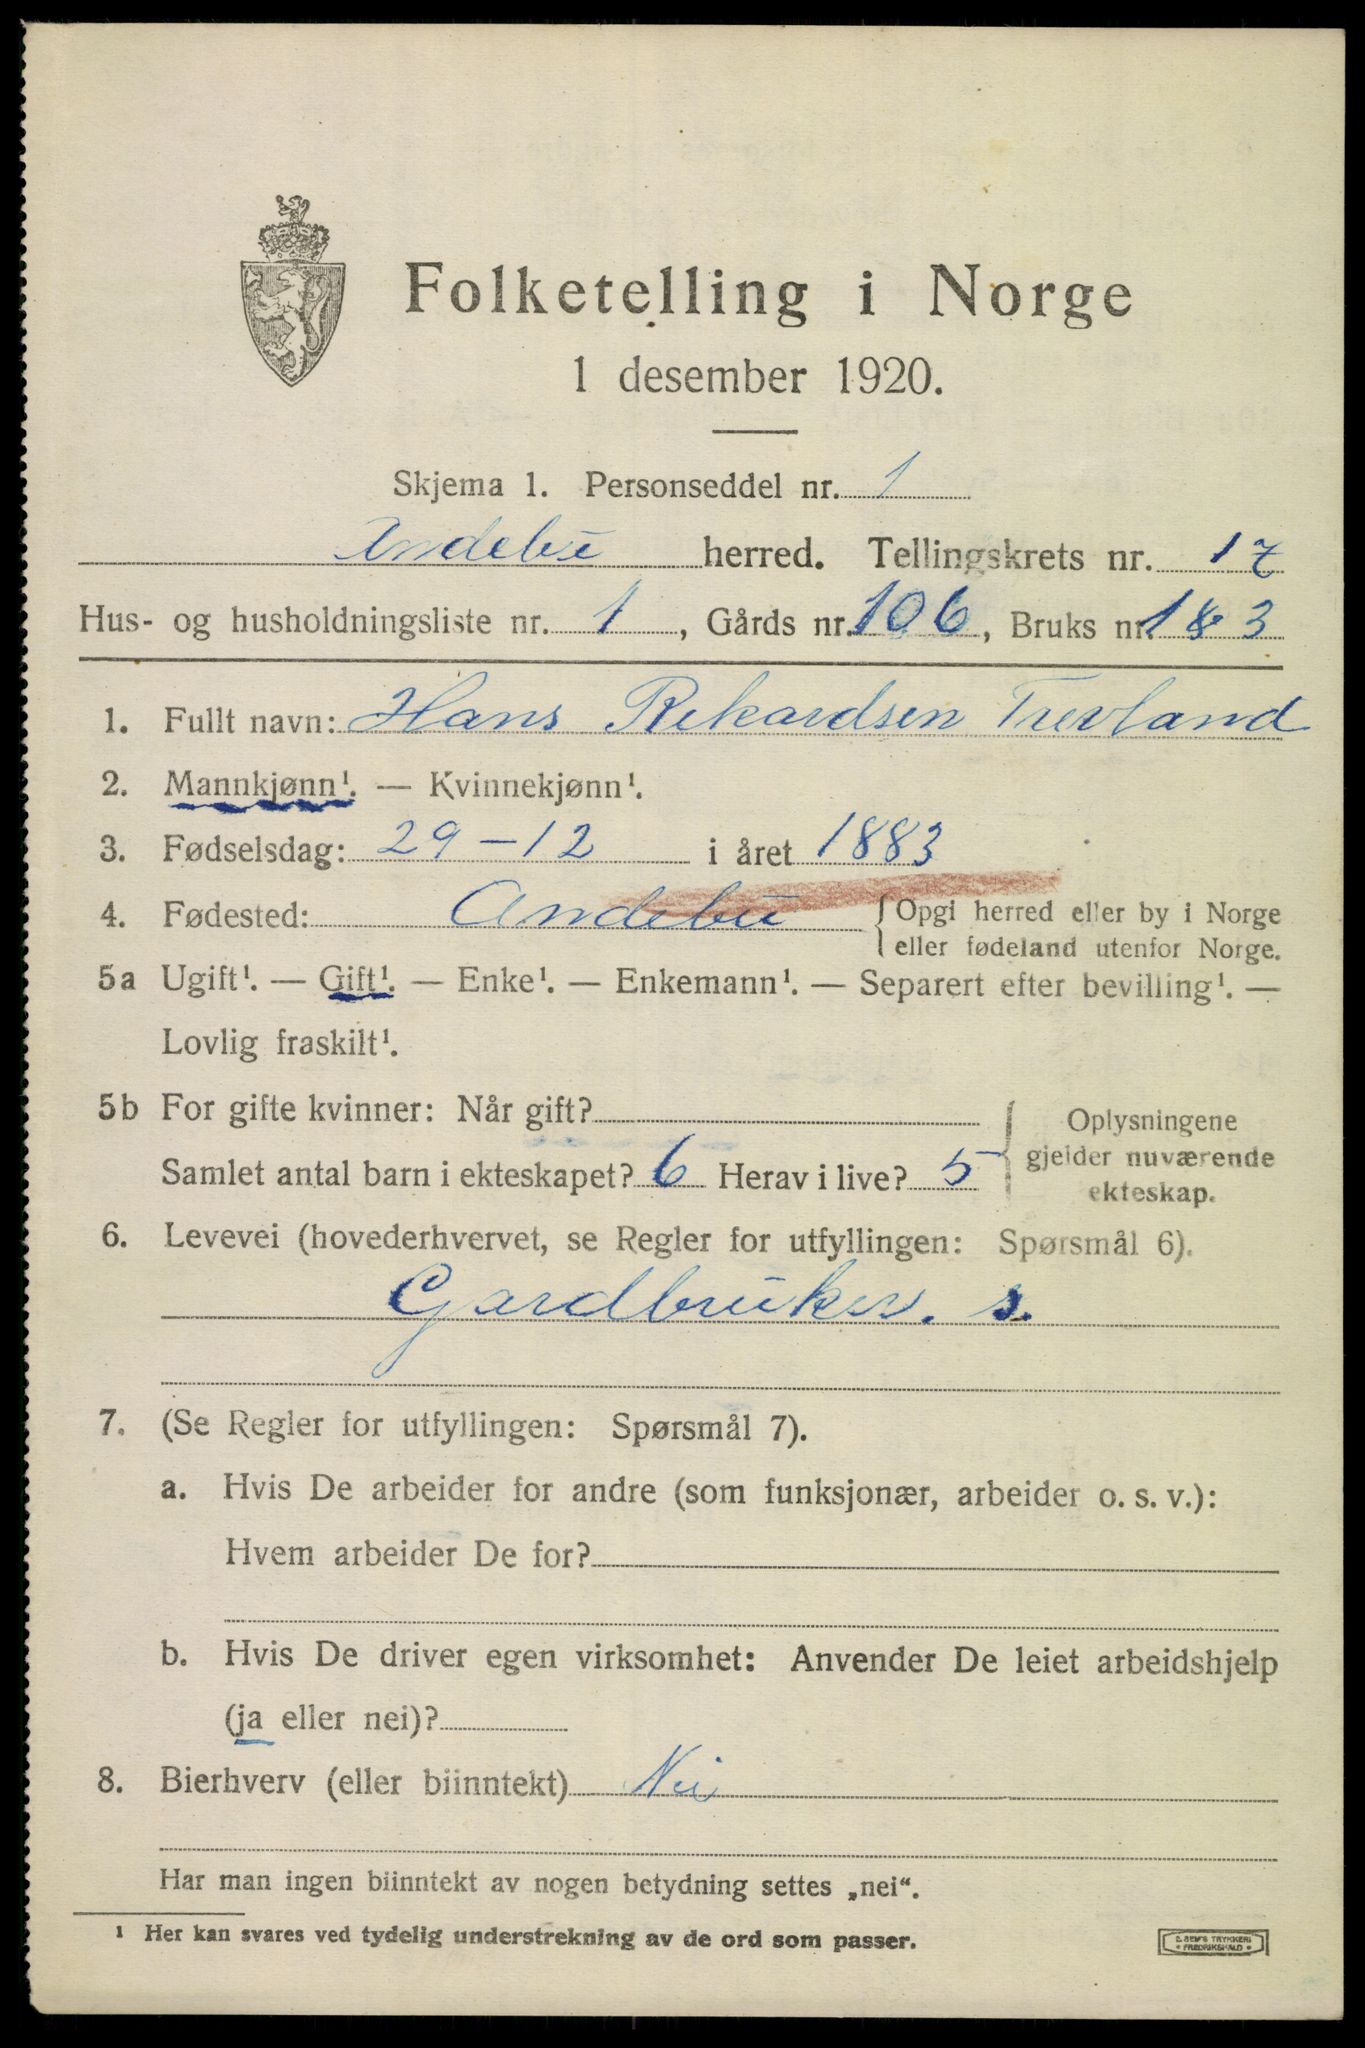 Folketelling i Norge
1 desember 1920.
Skjema 1. Personseddel nr. 1
Andebu herred. Tellingskrets nr. 17
Hus- og husholdningsliste nr. 1, Gårds nr. 106, Bruks nr. 1 & 3
1. Fullt navn: Hans Rikardsen Trevland
2. Mannkjønn¹. — Kvinnekjønn¹.
3. Fødselsdag: 29-12 i året 1883
4. Fødested: Andebu { Opgi herred eller by i Norge
eller fødeland utenfor Norge.
5a Ugift¹. — Gift¹. — Enke¹. — Enkemann¹. — Separert efter bevilling¹. —
Lovlig fraskilt¹.
5b For gifte kvinner: Når gift?
Samlet antal barn i ekteskapet? 6 Herav i live? 5
{ Oplysningene
gjelder nuværende
ekteskap.
6. Levevei (hovederhvervet, se Regler for utfyllingen: Spørsmål 6).
Gardbruker. s.
7. (Se Regler for utfyllingen: Spørsmål 7).
a. Hvis De arbeider for andre (som funksjonær, arbeider o. s. v.):
Hvem arbeider De for?
b. Hvis De driver egen virksomhet: Anvender De leiet arbeidshjelp
(ja eller nei)?
8. Bierhverv (eller biinntekt) Nei
Har man ingen biinntekt av nogen betydning settes „nei“.
¹ Her kan svares ved tydelig understrekning av de ord som passer.
TRYKKERI
FREDRIKSHALD